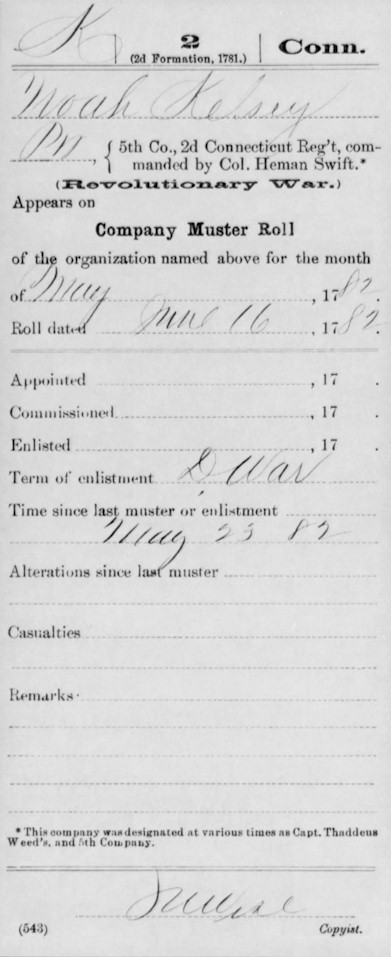 K | 2 | Conn.
(2d Formation, 1781.)
Noah Kelsey
Pvt, { 5th Co., 2d Connecticut Reg't, com-
manded by Col. Heman Swift.*
(Revolutionary War.)
Appears on
Company Muster Roll
of the organization named above for the month
of May, 1782.
Roll dated June 16, 1782.
Appointed , 17 .
Commissioned , 17 .
Enlisted , 17 .
Term of enlistment D War
Time since last muster or enlistment
May 23 82
Alterations since last muster
Casualties
Remarks:
* This company was designated at various times as Capt. Thaddeus
Weed's, and 5th Company.
(543) Copyist.